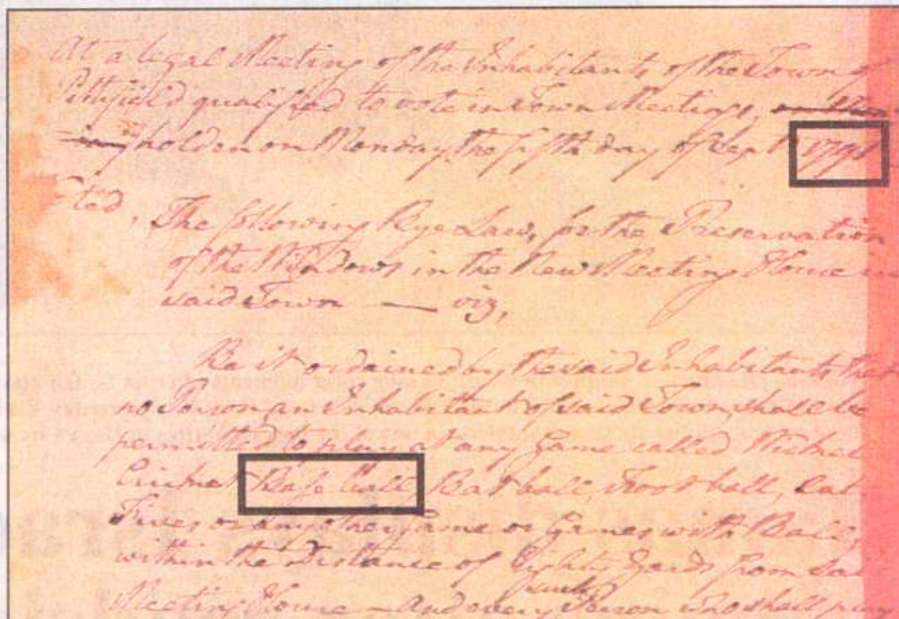 At a legal Meeting of the Inhabitants of the Town of
Pittsfield qualified to vote in Town Meetings,
holden on Monday the fifth day of Sept. 1791
The following Bye Law, for the Preservation
of the Windows in the New Meeting House in
said Town — viz,
Be it ordained by the said Inhabitants that
no Person an Inhabitant of said Town, shall be
permitted to play at any Game called Wicket
Cricket Base ball Bat ball, Foot ball, Cat
Fives or any other Game or Games with Ball,
within the Distance of Eighty Yards from said
such
Meeting House — And every Person who shall play